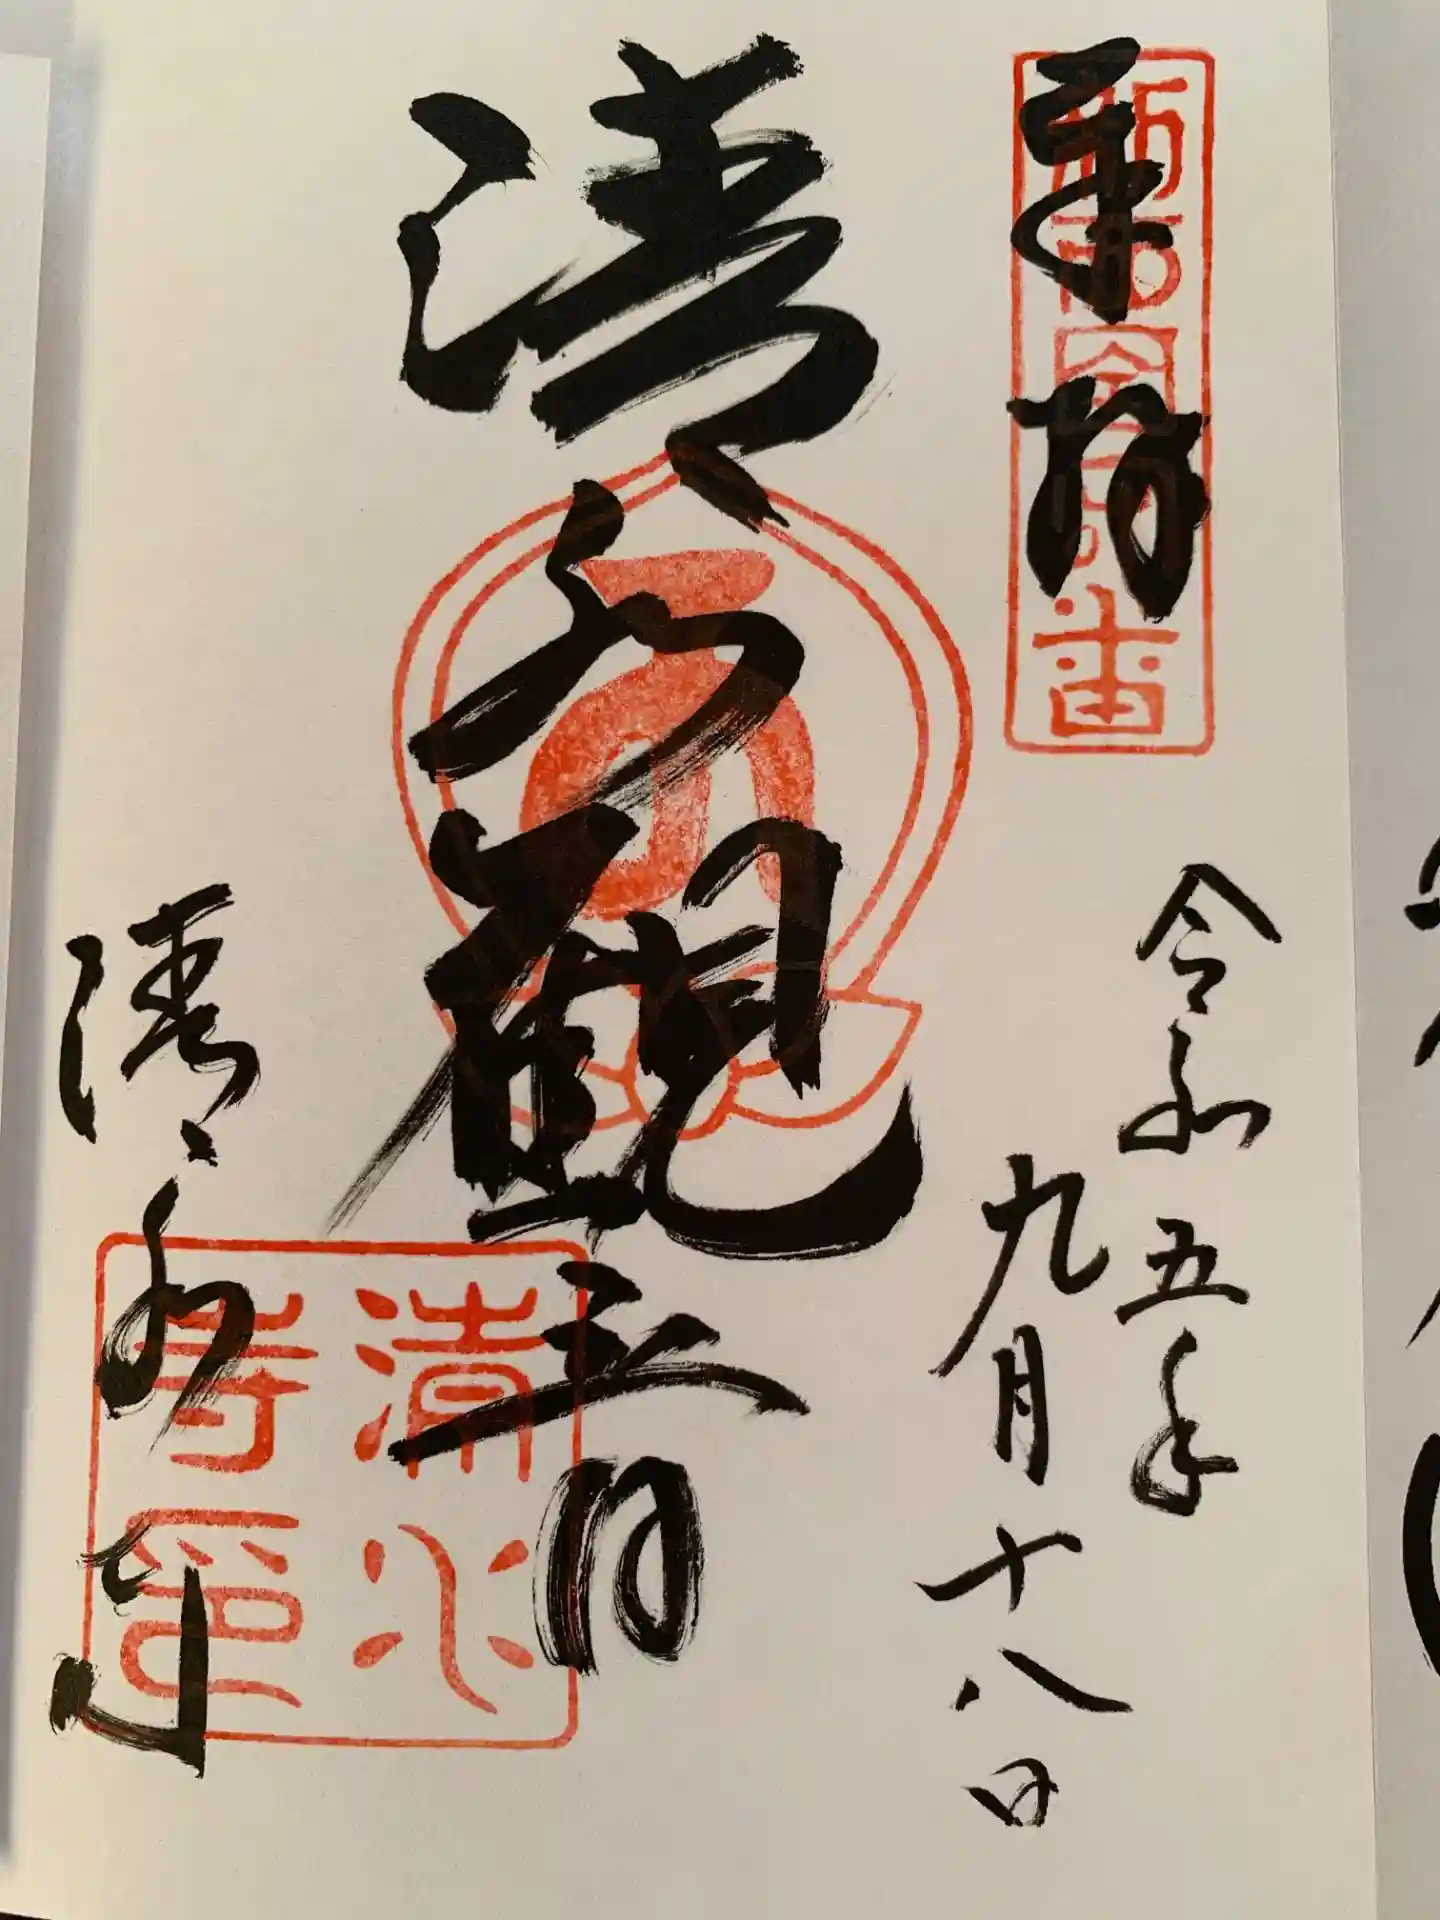 奉拝
令和五年
九月十八日
清水観音
清水寺
清水
寺印